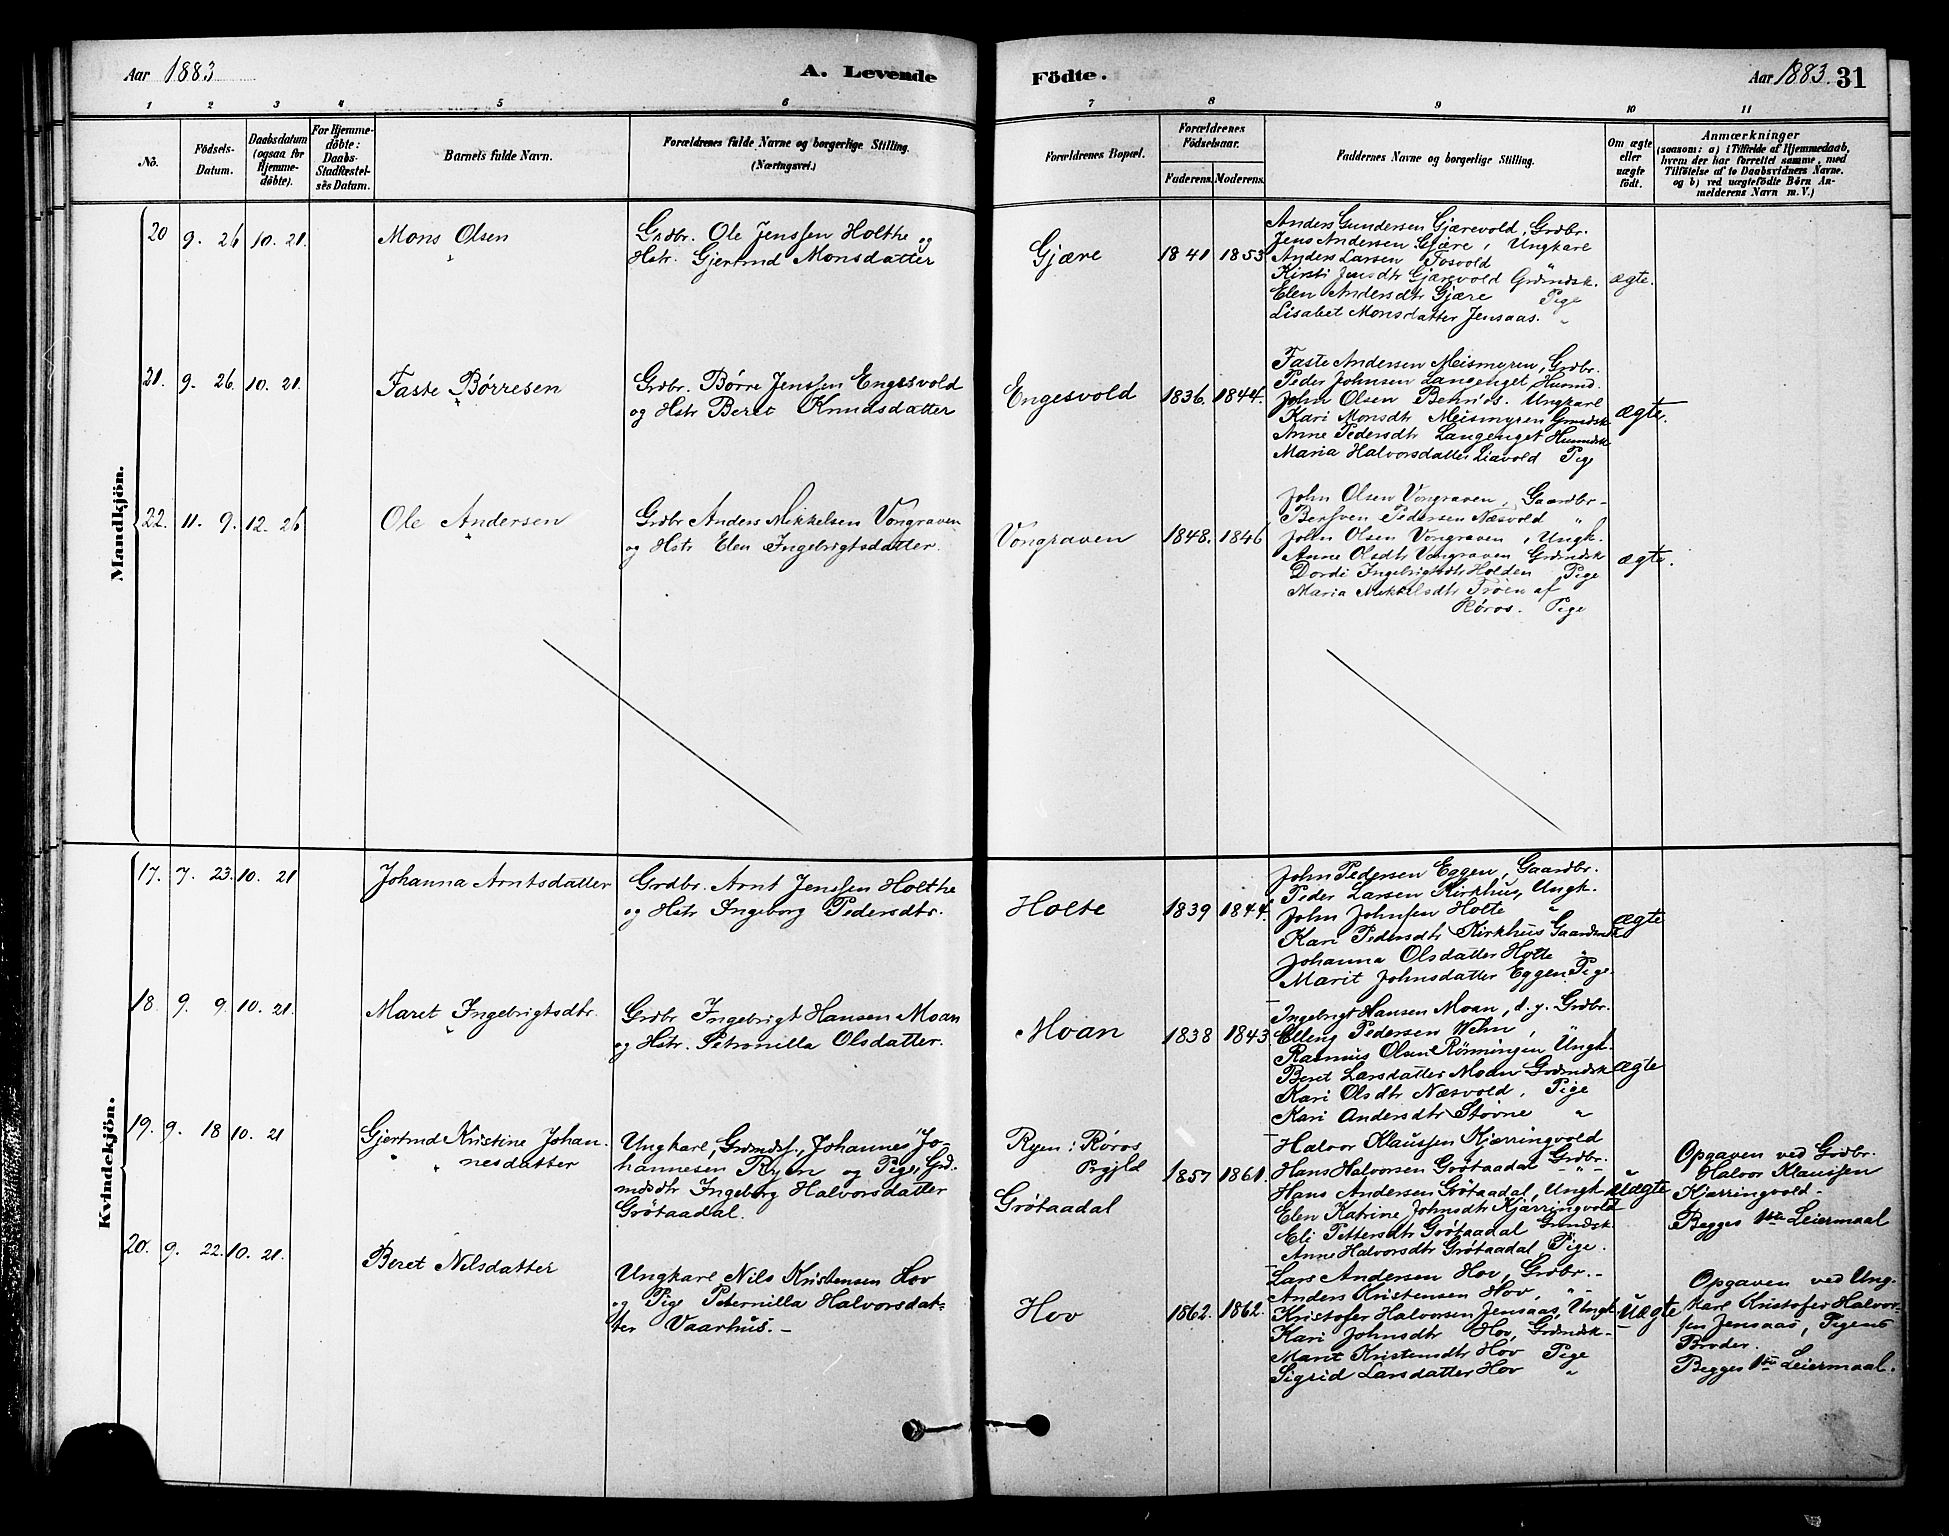 Aar 1883 A. Levende Födte. Aar 1883. 31
1 2 3 4 5 6 7 8 9 10 11
No. Födsels-Datum. Daabsdatum (ogsaa for Hjemmedöbte). For Hjemmedöbte: Daabs-Stadfæstelsës Datum. Barnets fulde Navn. Forældrenes fulde Navne og borgerlige Stilling. (Næringsvei.) Forældrenes Bopæl. Forældrenes Födselsaar. Faderens. Moderens. Faddernes Navne og borgerlige Stilling. Om ægte eller uægte födt. Anmærkninger (saasom: a) i Tilfælde af Hjemmedaab, hvem der har forrettet samme, med Tilföielse af to Daabsvidners Navne. og b) ved uægtefödte Börn Anmelderens Navn m. V.)
Mandkjön.
20 9. 26 10. 21. Mons Olsen
Grdbr. Ole Jenssen Holthe og
Hstr. Gjertrud Monsdatter
Gjære 1841 1853
Anders Gundersen Gjærevold, Grdbr.
Jens Andersen Gjære, Ungkarl
Anders Larsen Fosvold "
Kirsti Jensdtr Gjærevold Grdmdsk.
Elen Andersdtr Gjære Pige
Lisabet Monsdatter Jensaas. "
ægte.
21. 9. 26. 10. 21. Faste Børresen
Grdbr. Børre Jenssen Engesvold
og Hstr Beret Knudsdatter
Engesvold 1836. 1844.
Faste Andersen Meismyren, Grdbr.
Peder Johnsen Langenget, Husmd.
John Olsen Ungkarl
Kari Monsdtr Meismyren Grmdsk
Anne Pedersdtr Langenget Husmdsk
Maria Halvorsdatter Liavold Pige
ægte.
22. 11. 9. 12. 26 Ole Andersen
Grdbr Anders Mikkelsen Vongraven
og Hstr Elen Ingebrigtsdatter.
Vongraven 1848. 1846
John Olsen Vongraven, Gaardbr.
Bersven Pedersen Næsvold "
John Olsen Vongraven, Ungk.
Anne Olsdtr Vongraven Grdmdsk
Dordi Ingebrigtsdtr Holden Pige
Maria Mikkelsdtr Trøen af
Røros. Pige
ægte.
Kvindekjön.
17. 7. 23. 10. 21 Johanna Arntsdatter
Grdbr. Arnt Jenssen Holthe
og Hstr Ingeborg Pedersdtr.
Holte 1839 1844.
John Pedersen Eggen, Gaardbr.
Peder Larsen Kirkhus, Ungk.
John Johnsen Holte "
Kari Pedersdtr Kirkhus Gaardmdsk
Johanna Olsdatter Holte "
Marit Johnsdatter Eggen Pige.
ægte
18. 9. 9. 10. 21. Maret Ingebrigtsdtr.
Grdbr Ingebrigt Hansen Moan
og Hstr. Petronilla Olsdatter.
Moan 1838 1843
Ingebrigt Hansen Moan, d. y. Grdbr.
Elling Pedersen Wehn, "
Rasmus Olsen Rønningen Ungk.
Beret Larsdatter Moan Grdmdsk
Kari Olsdtr Næsvold, Pige
Kari Andersdtr Støvne "
ægte
19. 9. 18 10. 21 Gjertrud Kristine Johan-
nesdatter
Ungkarl, Grdmds., Johannes Jo-
hannesen Ryen og Pige, Grd-
mdsdtr Ingeborg Halvorsdatter
Grøtaadal.
Ryen: Røros
Prgjld
Grøtaadal
1857 1861.
Halvor Klaussen Kjærringvold
Hans Halvorsen Grøtaadal Grdbr.
Hans Andersen Grøtaadal, Ungk
Elen Katrine Johnsdtr Kjærringvold
Eli Pettersdtr Grøtaadal Grmdsk
Anne Halvorsdtr Grøtaadal, Pige.
Uægte
Opgaven ved Grdbr.
Halvor Klaussen
Kjærringvold.
Begges 1ste Leiermaal
20. 9. 22. 10. 21. Beret Nilsdatter
Ungkarl Nils Kristensen Hov
og Pige Peternilla Halvorsdat-
ter Vaarhus.-
Hov 1862. 1862.
Lars Andersen Hov, Grdbr.-
Anders Kristensen Hov, "
Kristofer Halvorsen Jensaas, Ungk
Kari Johnsdtr Hov, Grdmdsk-
Marit Kristensdtr Hov Pige
Sigrid Larsdatter Hov "
Uægte
Opgaven ved Ung-
karl Kristofer Halvor-
sen Jensaas, Pigens
Broder.
Begges 1ste Leiermaal.